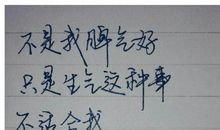 不是我脾气好
只是生气这种事
不适合我